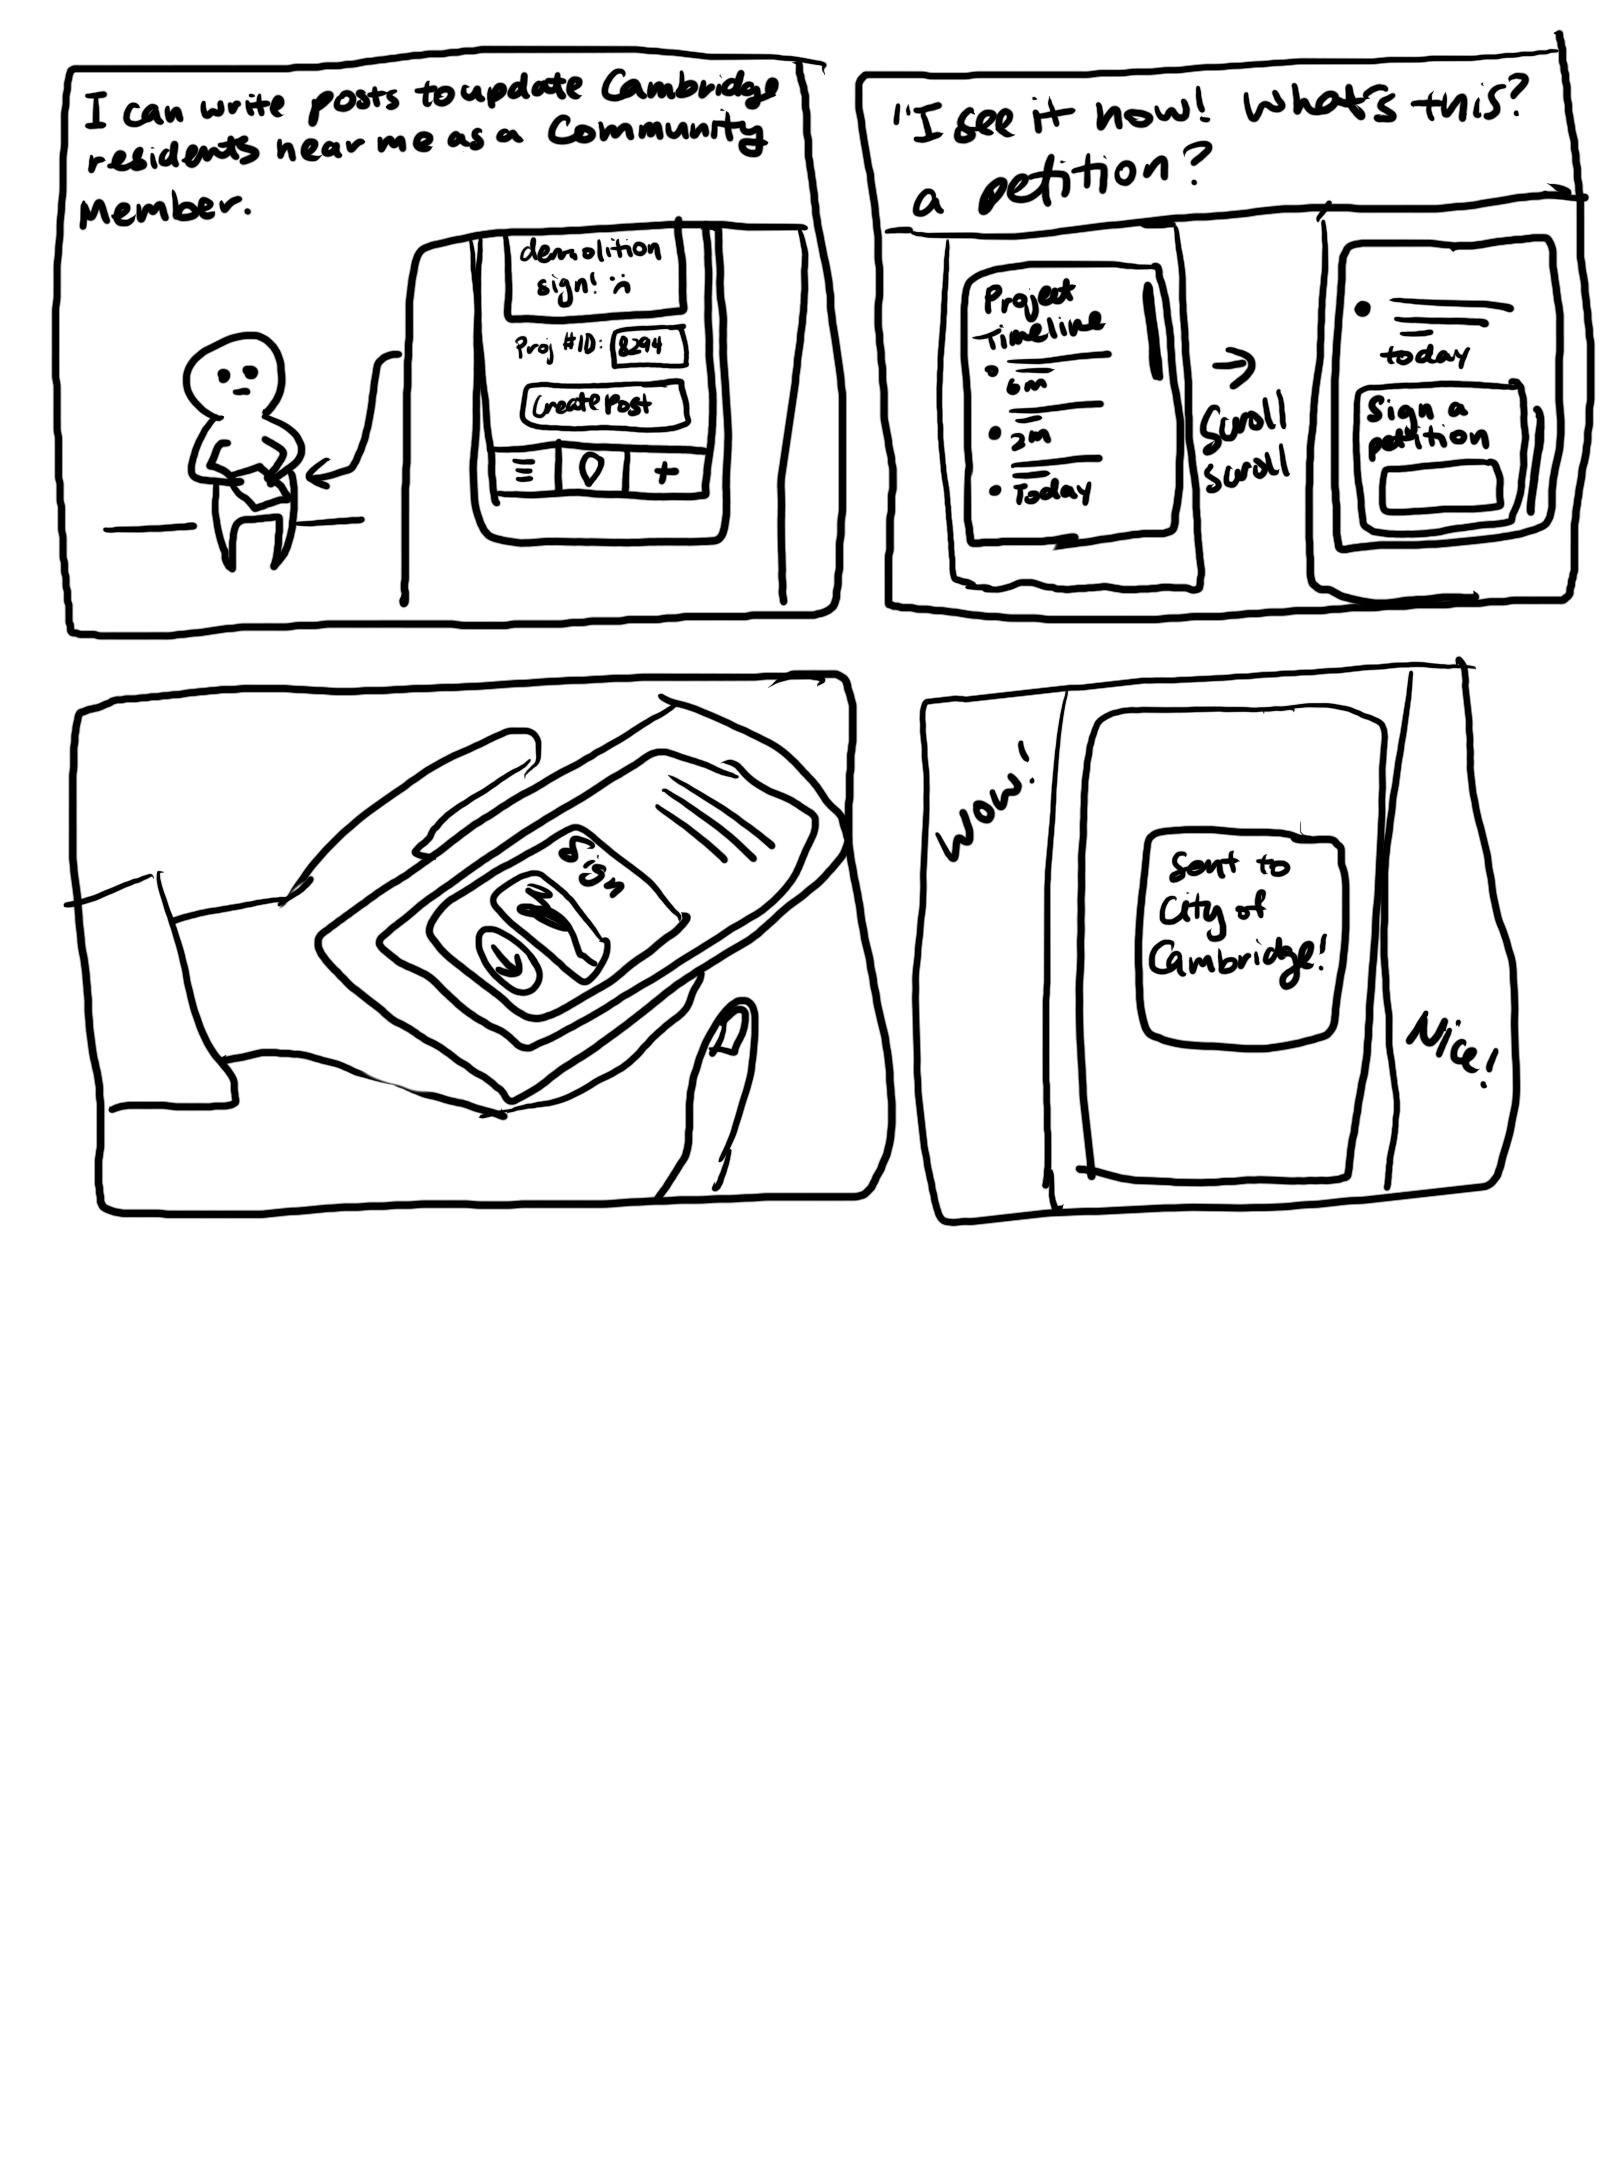 I can write posts to update Cambridge
residents near me as a Community
Member.
demolition
sign! :(
Proj #ID: 8294
Create Post
+
"I see it now! What's this?
a petition?
Project
Timeline
6m
2m
Today
→
Scroll
scroll
today
Sign a
petition
Sign
Wow!
Sent to
City of
Cambridge!
Nice!